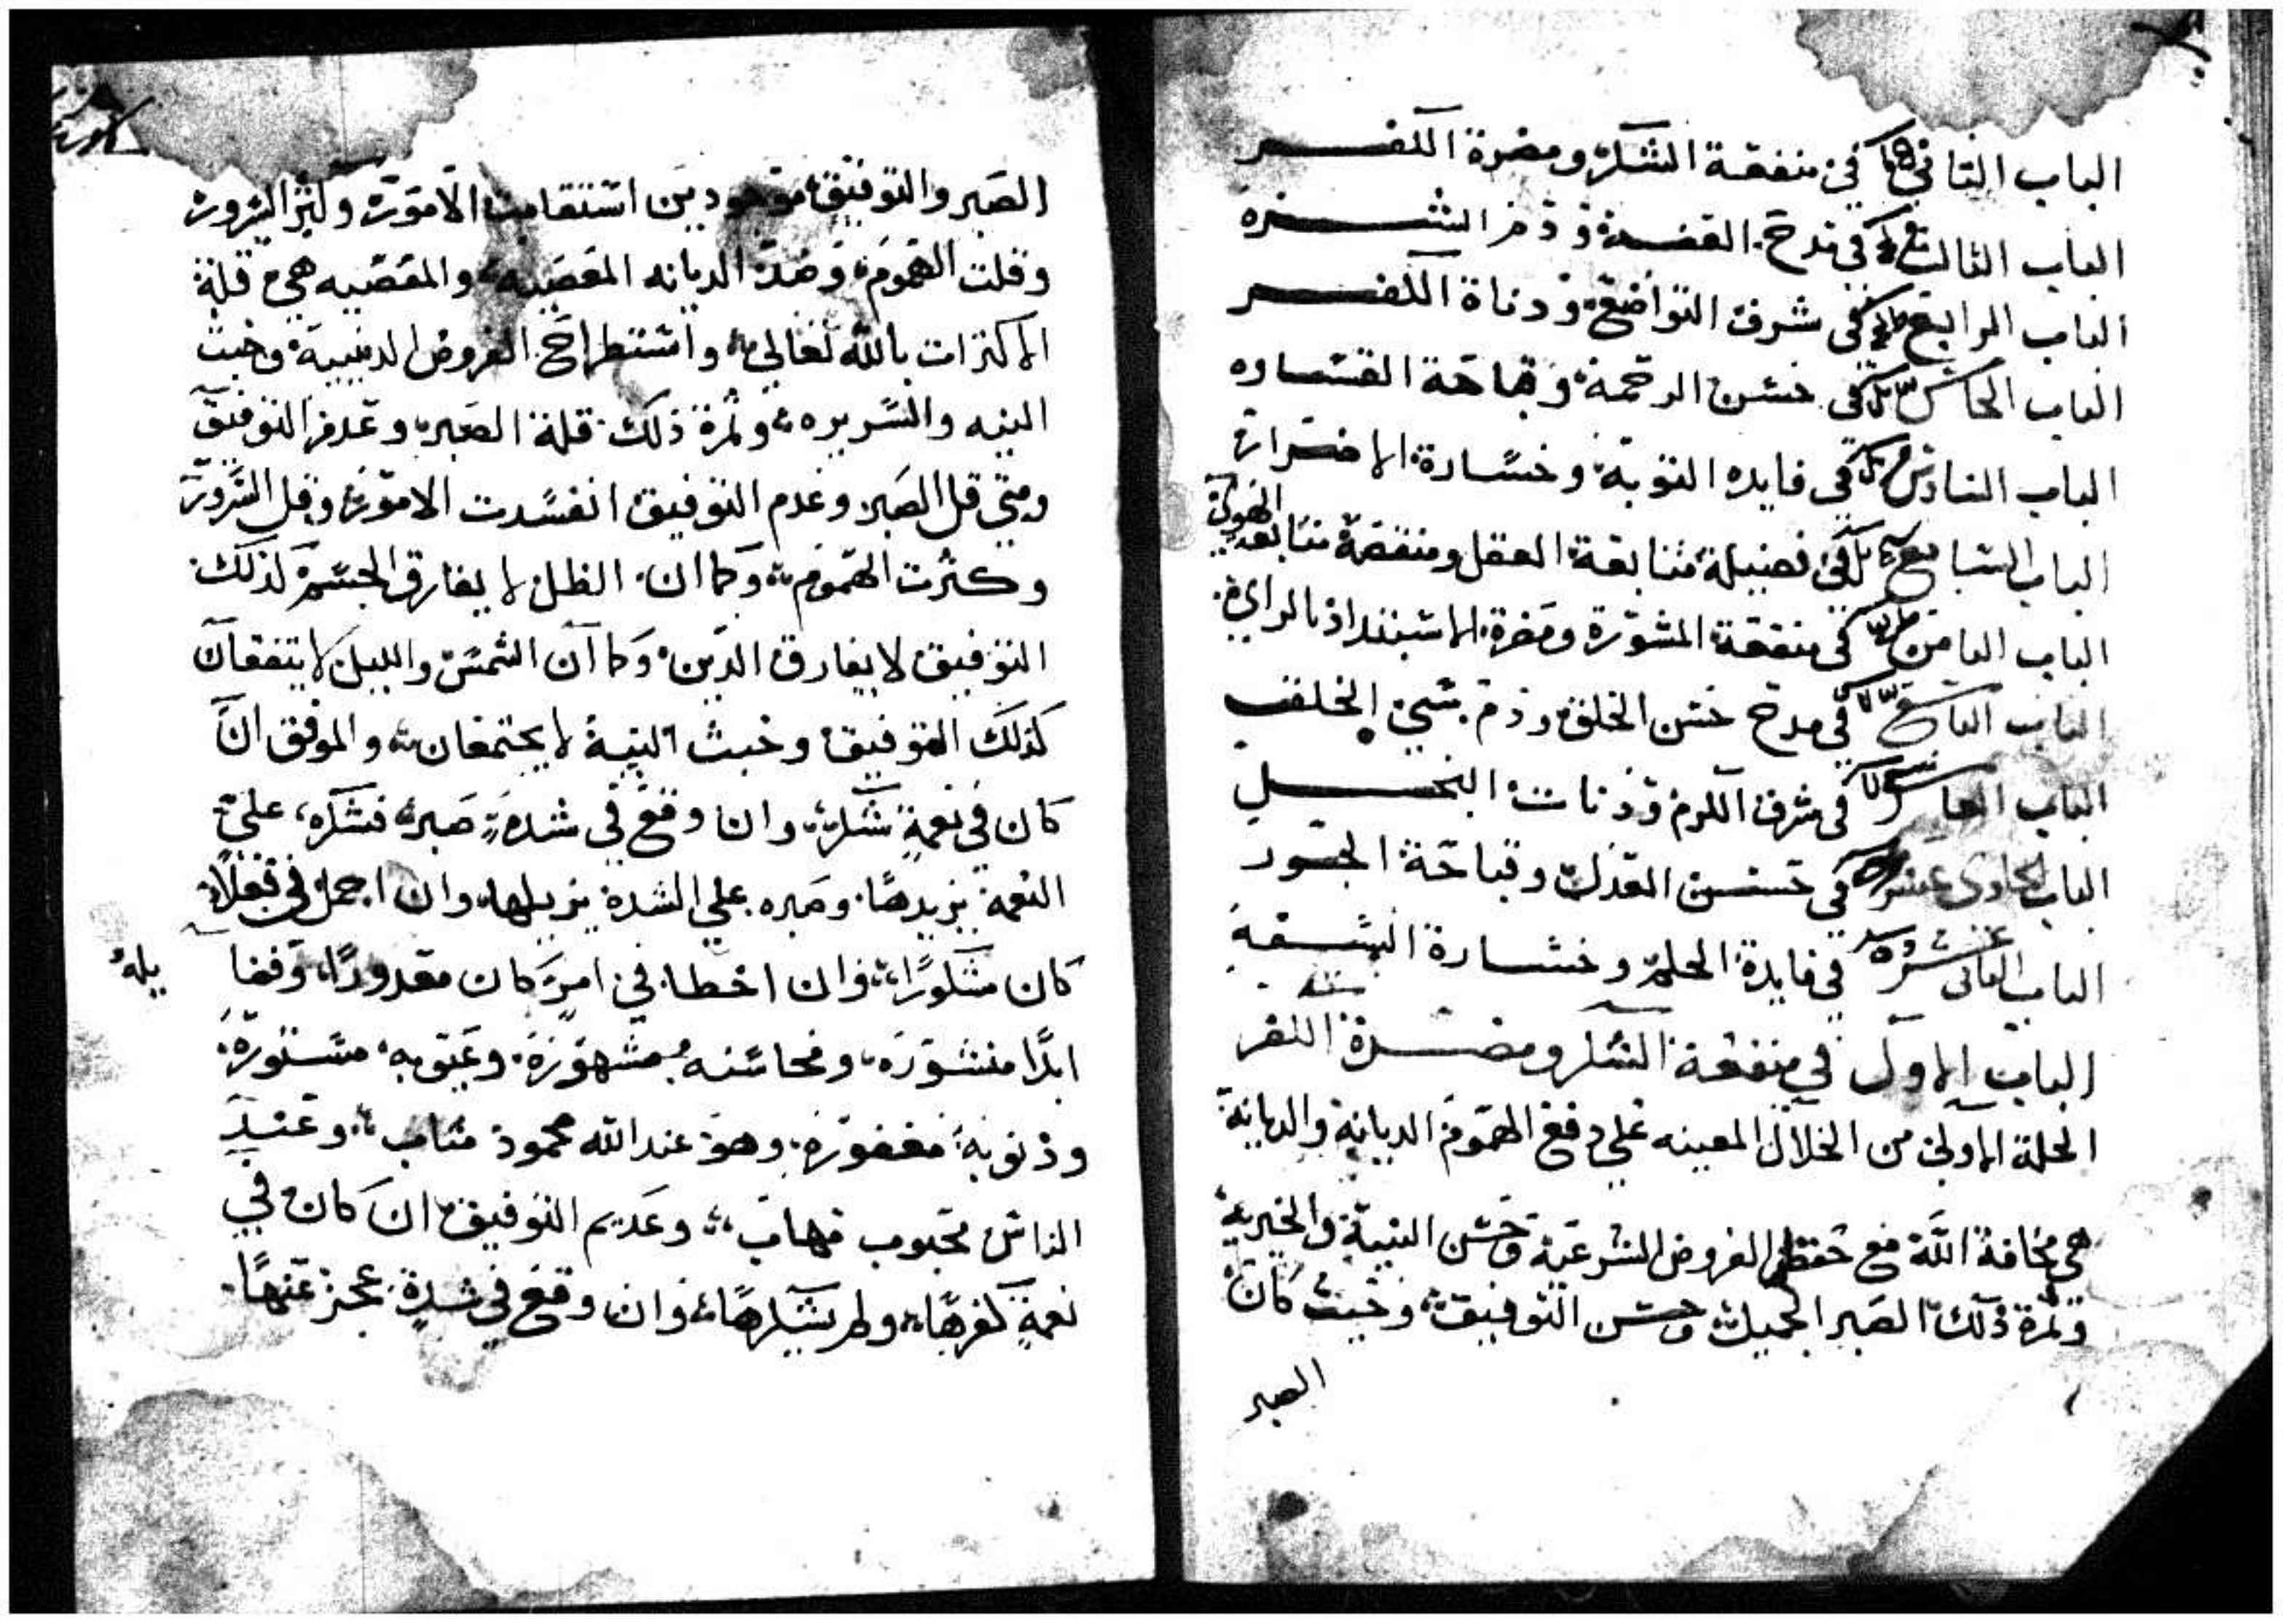 الباب الثاني في منفعة الشكر ومضرة الكفر
الباب الثالث في مدح العفة وذم الشره
الباب الرابع في شرف التواضع ودناة الكفر
الباب الخامس في حسن الرحمة وقباحة القساوه
الباب السادس في فايده التوبة وخسارة الاضرار
الباب السابع في فضيلة متابعة العقل ومنقصة متابعة الهوي
الباب الثامن في منفعة المشورة ومضرة الاستبداد بالراي
الباب التاسع في مدح حسن الخلق وذم سي الخلق
الباب العاشر في شرف الكرم ودنات البخل
الباب الحادى عشر في تحسين العدل وقباحة الجور
الباب الثانى عشر في فايدة الحلم وخسارة السفه
الباب الاول في منفعة الشكر ومضرة الكفر
الحلة الاولي من الخلال المعينه علي دفع الهموم الديانة والديانة
هي مخافة الله مع حفظ الفروض الشرعية وحسن النية والخيرية
وثمرة ذلك الصبر الجميل وحسن التوفيق وحيث كان
الصبر
الصبر والتوفيق موجودين استقامت الامور وكثر السرور
وقلت الهموم وضد الديانه المعصيه والمعصيه هي قلة
الاكترات بالله تعالي واستطراح الفروض الدينية وخبث
النيه والسريره وثمرة ذلك قلة الصبر وعدم التوفيق
ومتي قل الصبر وعدم التوفيق انفسدت الامور وقل السرور
وكثرت الهموم وكما ان الظل لا يفارق الجسم كذلك
التوفيق لا يفارق الدين وكما ان الشمس والليل لا يتفقان
كذلك التوفيق وخبث النية لا يجتمعان والموفق ان
كان في نعمة شكر وان وقع في شدة صبر فشكره علي
النعمة يزيدها وصبره علي الشدة يزيلها وان اجمل في فعلا
كان مشكورا وان اخطا في امر كان معذورا وفضا
يله
ابدا منشوره ومحاسنه مشهورة وعيوبه مستورة
وذنوبه مغفوره وهو عند الله محمود مثاب وعند
الناس محبوب مهاب وعديم التوفيق ان كان في
نعمة كفرها ولم يشكرها وان وقع في شدة عجز عنها